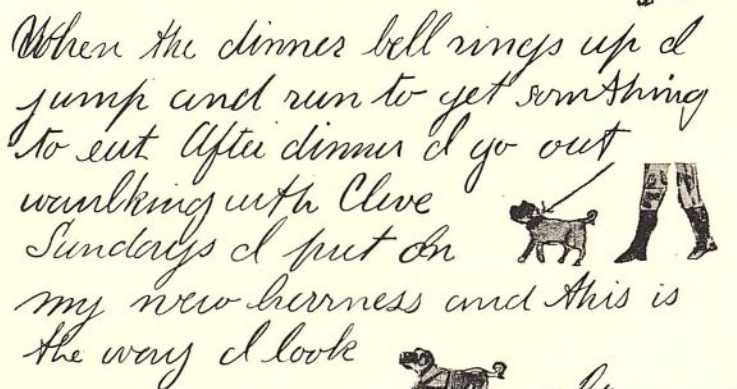 When the dinner bell rings up I
jump and run to get somthing
to eat After dinner I go out
waulking with Cleve
Sundays I put on
my new harrness and this is
the way I look